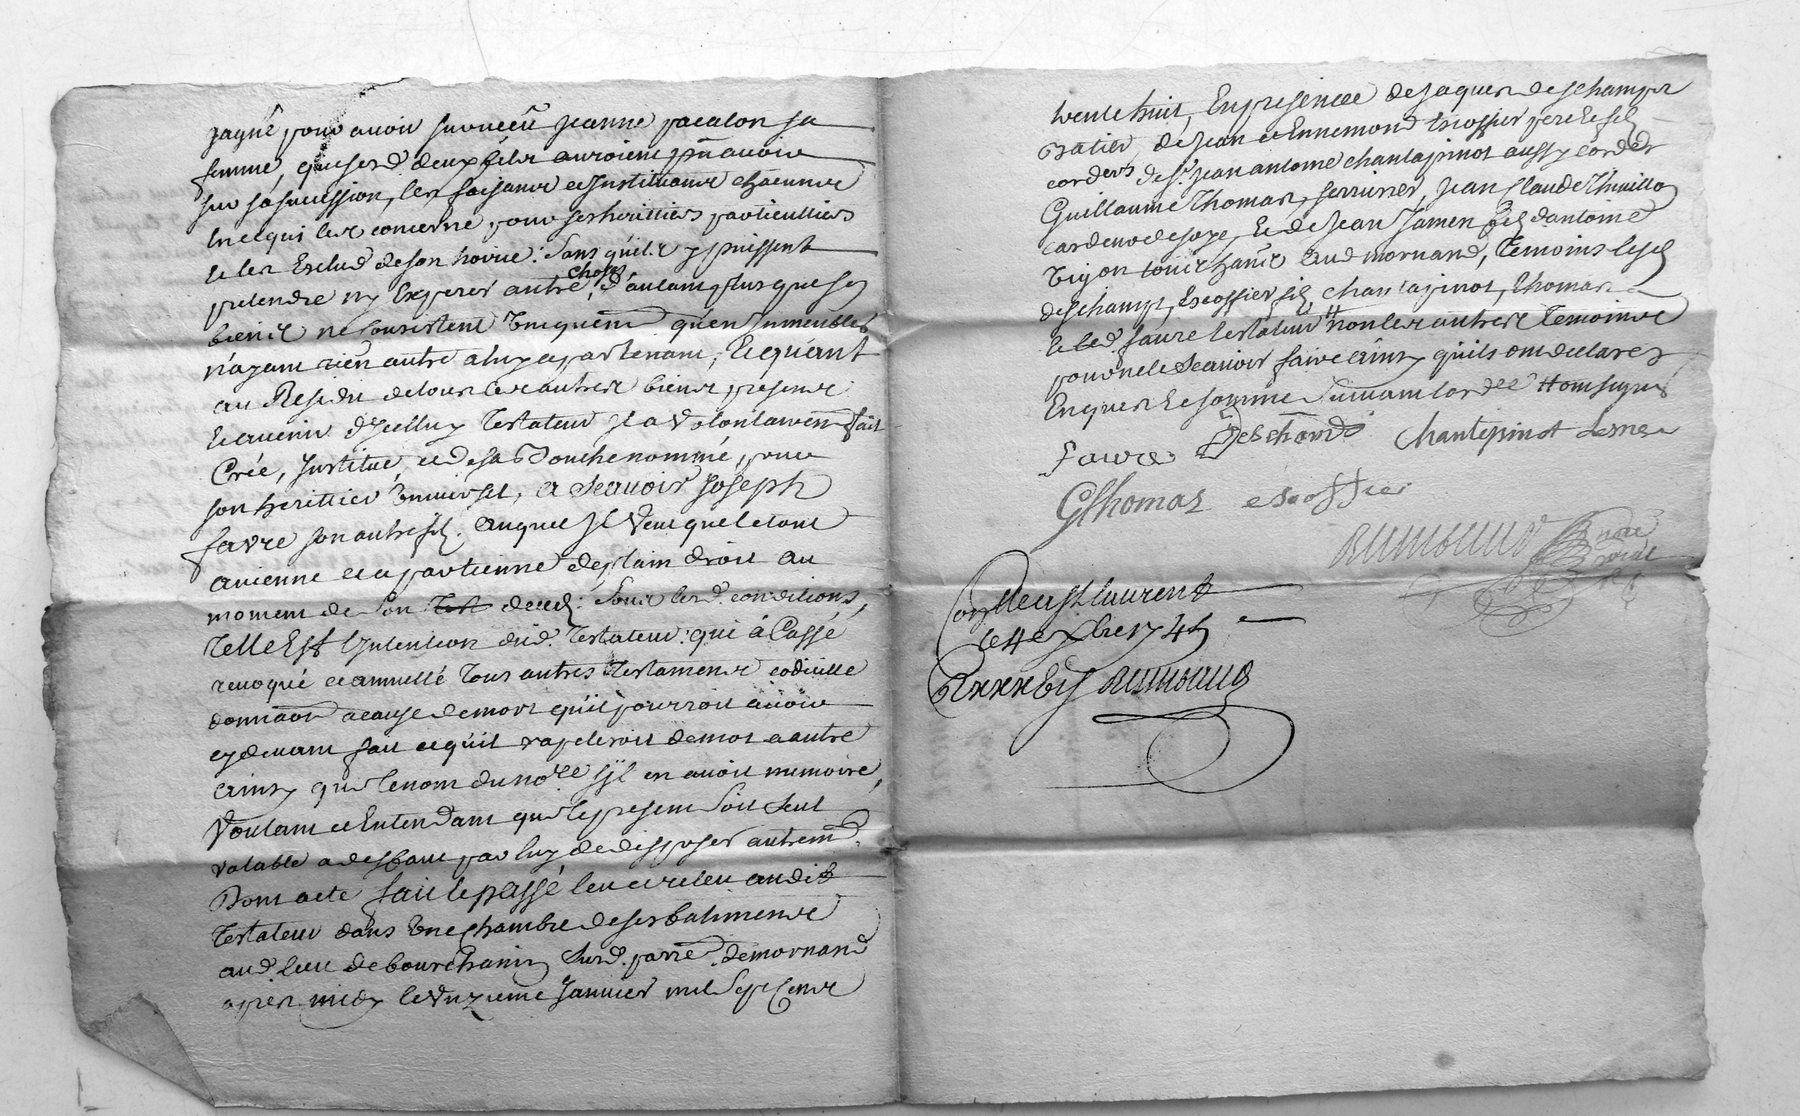 gagné pour avoir survecûe jeanne pacalon sa
femme, que sesd. deux filz auroient pû avoir
sur sa succession, les faisant et Instituant chacune
En ce qui les concerne, pour ses heritiers particulliers
et les Exclud de son hoirie: Sans qu'ils y puissent
pretendre ny Esperer autre choses, d'autant plus que ses
biens ne consistent Uniquem qu'en Immeubles
n'ayant rien autre a luy apartenant, Et quant
au Residu de tous les autres biens, presents
Et avenir d'Jcelluy Testateur Jl a Volontairem fait
Créé, Jnstitué, et de sa Bouche nommé, pour
son heritier Universel, a Scauoir Joseph
favre son autre fils, auquel Jl Veut que le tout
avienne et apartienne de plain droit au
moment de son deced: Sous lesd. conditions,
Telle Est Lintention dud. Testateur: qui à Cassé
reuoqué et annullé Tous autres Testaments codicille
donnaon a cause de mort qu'il pourroit auoir
cy devant fait et quil rapeleroit de mot a autre
Ainsy que le nom du nore sjl en auoit memoire,
Voulant et Entendant que le present soit Seul
valable a desfaut par luy de disposer autrem.
Dont acte fait Et passé leu et releu audit
Testateur dans Une chambre de ses batiments
aud. lieu de bourchanin Susd. parre. de mornand
apres midy le Unzieme Janvier mil Sept Cents
trente huit, En presence de Jaques deschamps
Batier, de Jean et Ennemond Escoffier pere Et fils
corders de Sr. Jean antoine chantapinot aussy corder
Guillaume Thomas, serrurier, Jean Claude Thuillo
cardeur de soye, Et de Jean Jamen fils d'antoine
Vigon tous hants. aud mornand, Temoins lesd
deschamps, Escoffier fils, chantapinot, Thomas
et led. faure Testateur non les autres Temoins
pour ne le Scauoir faire ainsy quils ont declarez
Enquis Et sommé Suivant lord.ce Ont signé
Favre Deschamps Chantepinot Lesnes
G Thomas escoffier
Rimoaud nore royal
Con a St Laurent
le 4e Xbre 1745
R xxxbs Rimoaud